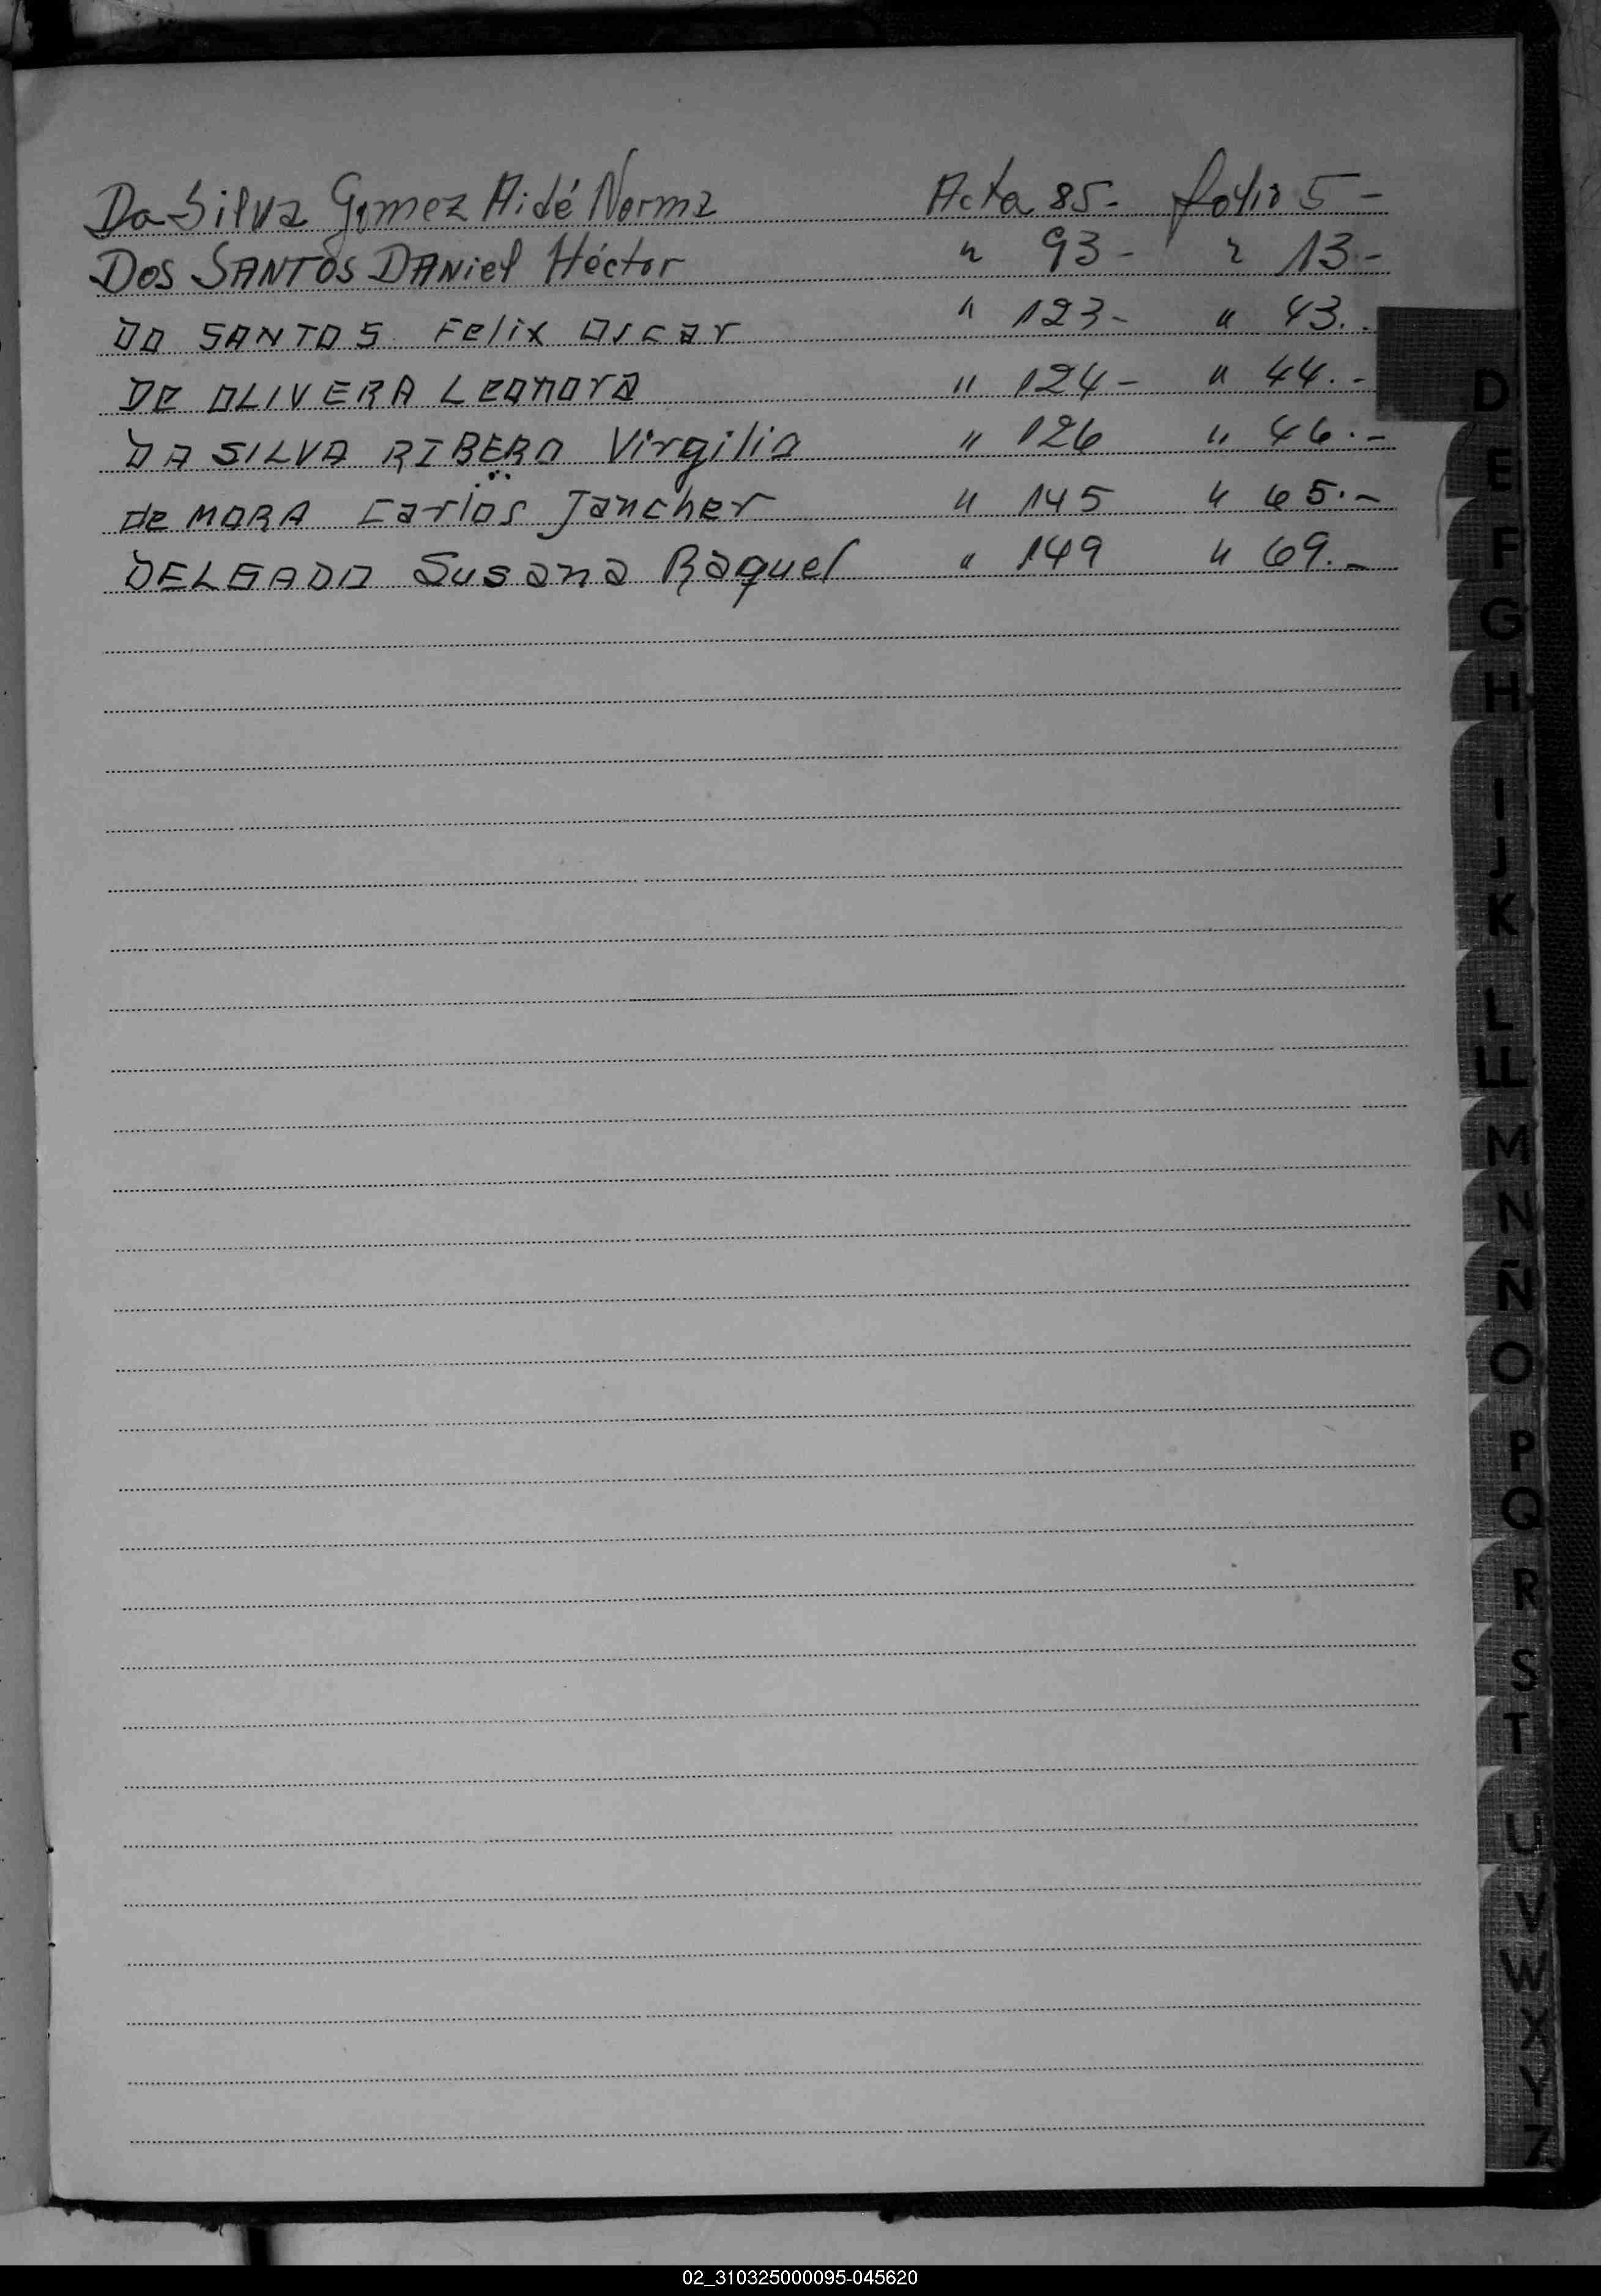 Da Silva Gomez Aidé Norma Acta 85- folio 5-
Dos SANTOS DANiel Héctor " 93- " 13.-
DO SANTOS Felix Oscar " 123- " 43.-
DE OLIVERA Leonora " 124- " 44.-
DA SILVA RIBERO Virgilio " 126 " 46.-
de MORA Carlos Jancher " 145 " 65.-
DELGADO Susana Raquel " 149 " 69.-
D
E
F
G
H
I
J
K
L
LL
M
N
Ñ
O
P
Q
R
S
T
U
V
W
X
Y
Z
02_310325000095-045620